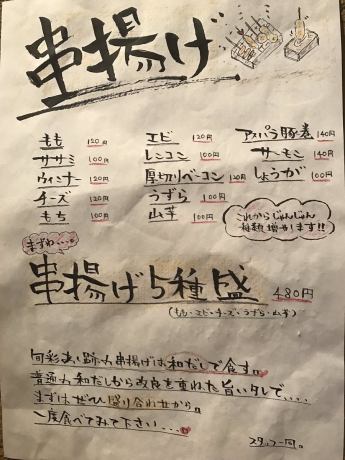 串揚げ
もも 120円 エビ 120円 アスパラ豚巻 140円
ササミ 100円 レンコン 100円 サーモン 140円
ウィンナー 120円 厚切りベーコン 120円 しょうが 100円
チーズ 120円 うずら 100円
もち 100円 山芋 100円
これからじゃんじゃん
種類増やします!!
まずわ・・・。
串揚げ5種盛 480円
(もも・エビ・チーズ・うずら・山芋)
旬彩あい跡の串揚げは和だしで食す。
普通の和だしから改良を重ねた旨いタレで・・・・
まずはぜひ盛り合わせから。
一度食べてみて下さい・・・。
スタッフ一同。